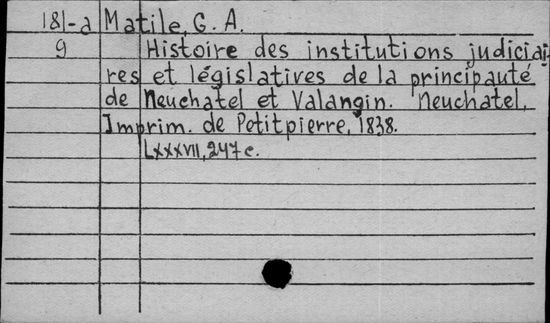 181-a Matile, G. A.
9 Histoire des institutions judiciai-
res et législatives de la principauté
de Neuchatel et Valangin. Neuchatel,
Imprim. de Petitpierre, 1838.
LXXXVII, 247 c.